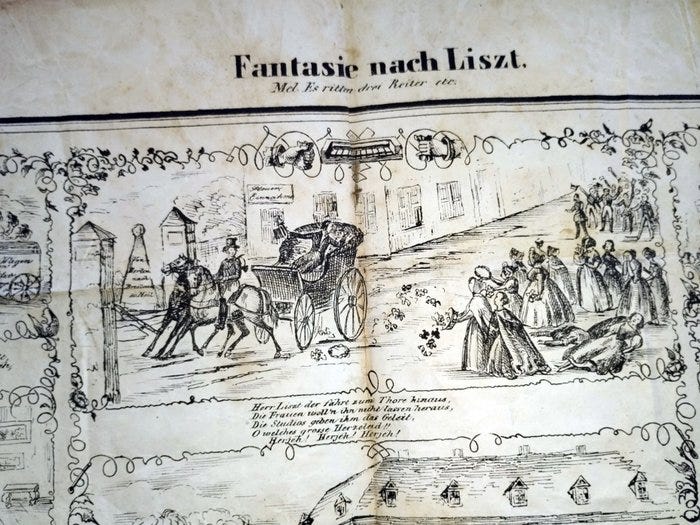 Fantasie nach Liszt.
Mel. Es ritten drei Reiter etc.
Herr Liszt der fährt zum Thore hinaus,
Die Frauen woll'n ihn nicht lassen heraus,
Die Studios geben ihm das Geleit,
O welches grosse Herzeleid!!
Herjeh! Herjeh! Herjeh!